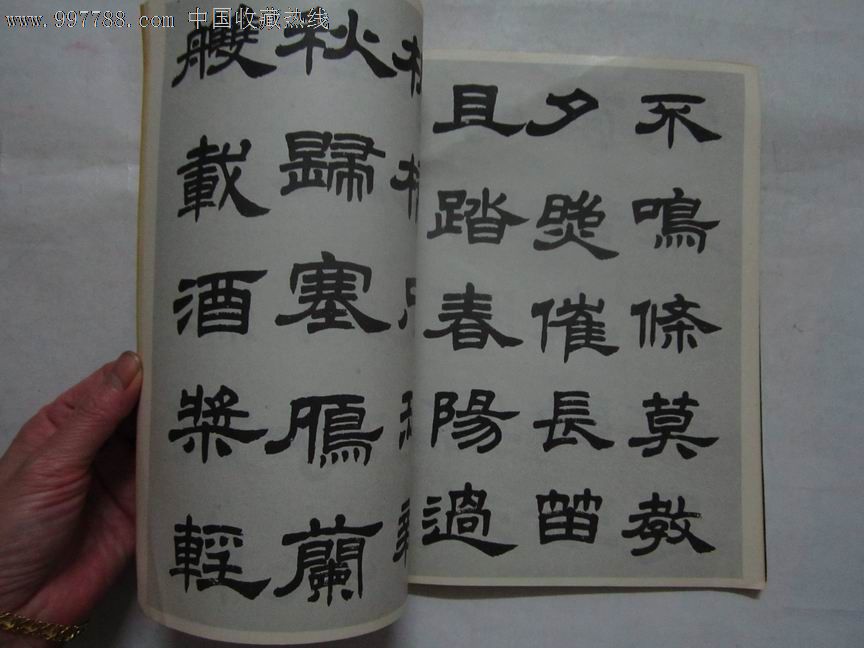 www.997788.com 中国收藏热线
不鳴條莫教
夕照催長笛
且踏春陽過
秋歸塞鴈蘭
艭載酒槳輕